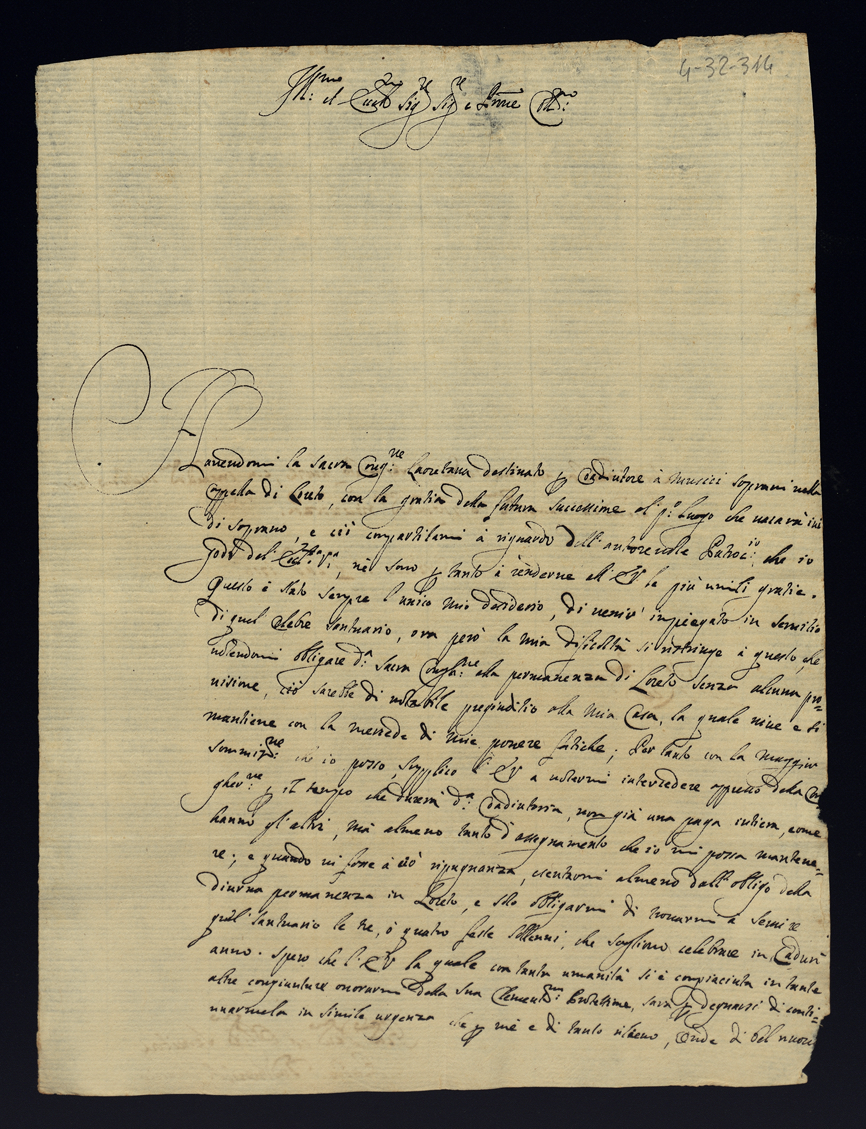 4-32-314
Ill:mo et Ecc:mo Sig:re Sig:re e Prone Coll:mo
Hauendomi la sacra Cong:ne Lauretana destinato p Coadiutore à Musici soprani nella
Cappella di Loreto, con la gratia della futura successione al p:o luogo che vacarà iui
di soprano, e ciò compartitami à riguardo dell'autoreuole Patroc:io, che io
godo dell' V:a, nè sono p tanto à renderne all'EV le più umili gratie.
Questo è stato sempre l'unico mio desiderio, di venir impiegato in seruitio
di quel celebre santuario, ora però la mia difficoltà si ristringe à questo, che
uolendomi obligare d:a Sacra Congreg:ne alla permanenza di Loreto senza alcuna pro=
uisione, ciò sarebbe di notabile pregiuditio alla mia Casa, la quale uiue e si
mantiene con la mercede di mie pouere fatiche; Per tanto con la maggior
sommiss:ne che io posso, supplico l'EV a uolermi intercedere appresso della Con
gher:ne p il tempo che durerà d:a Coadiutoria, non già una paga intiera, come
hanno gl'altri, mà almeno tanto d'assegnamento che io mi possa mantene=
re; e quando ui fosse à ciò ripugnanza, esentarmi almeno dall'obligo della
diurna permanenza in Loreto, e solo obligarmi di trouarmi a seruire
quel santuario le tre, ò quatro feste sollenni, che sogliono celebrare in Cadun'
anno. Spero che l'EV la quale con tanta umanità si è compiaciuta in tante
altre congiunture onorarmi della sua Clementiss:ma Protettione, sarà p degnarsi di conti=
nuarmela in simile urgenza che p mè è di tanto rilieuo, Onde di bel nuouo